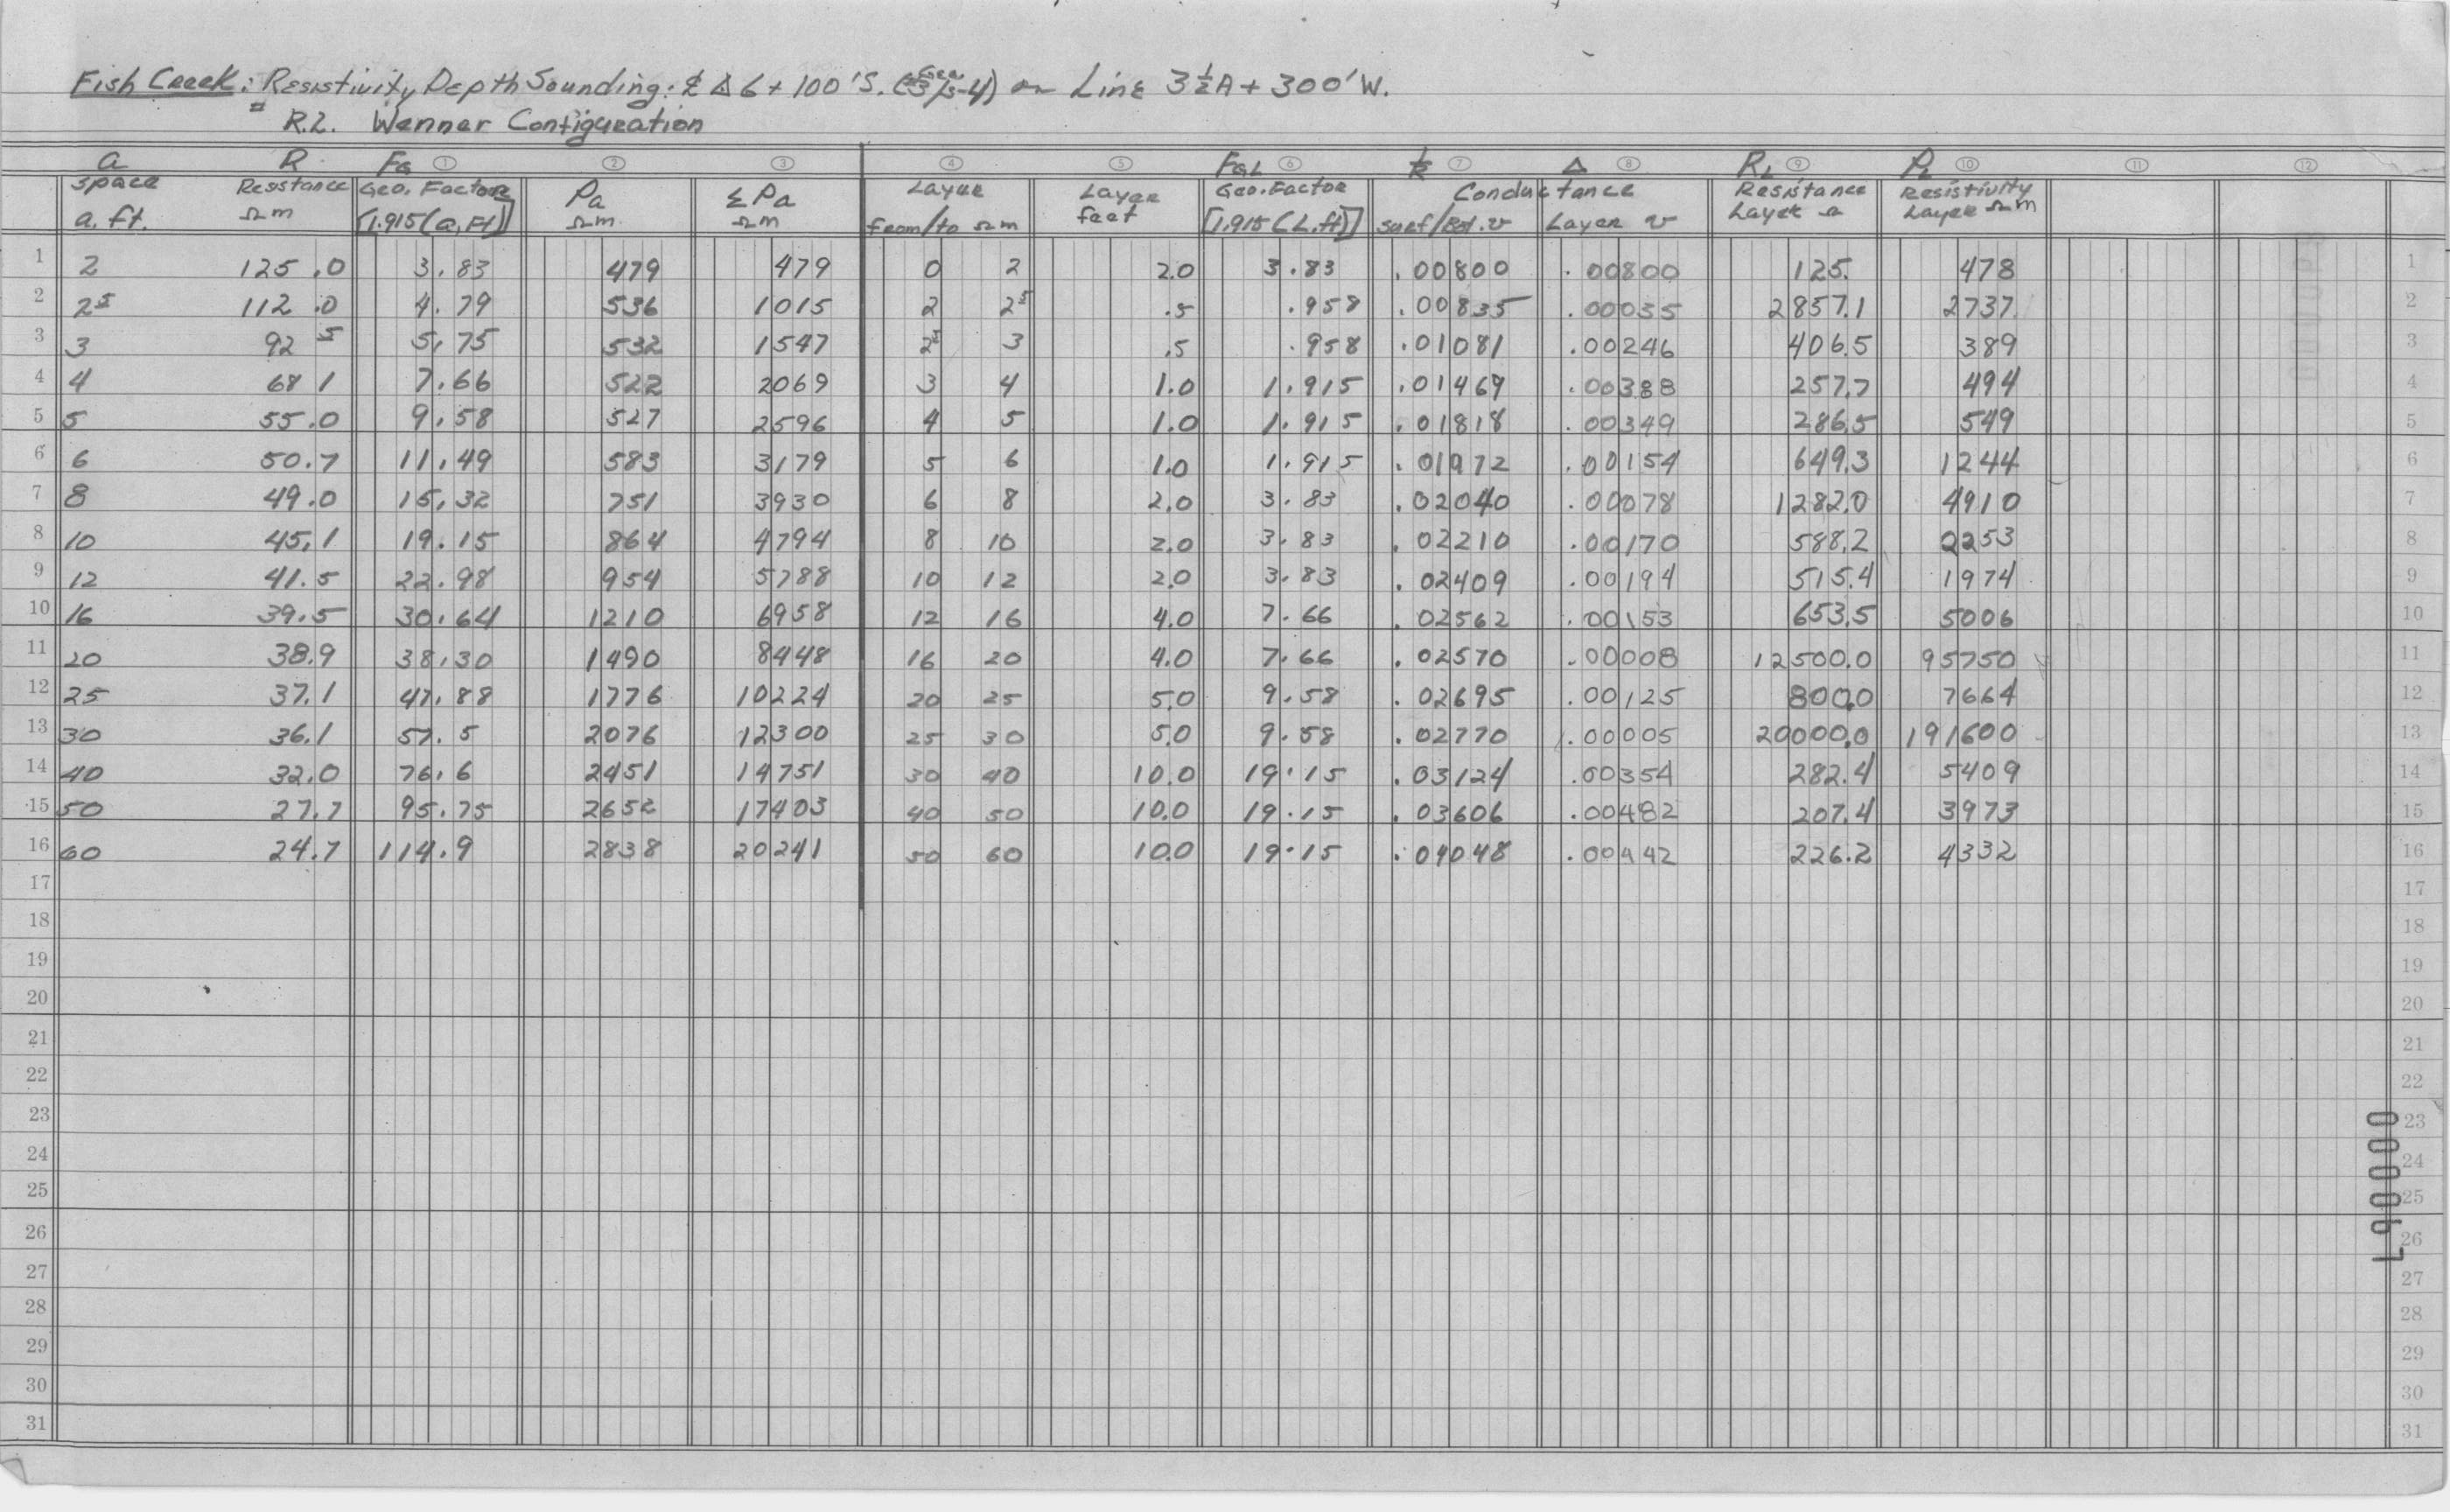 Fish Creek: Resistivity Depth Sounding: ℄ Δ 6 + 100'S. on Line 3½A + 300'W.
" R.2. Wenner Configuration
a R Fa ① ② ③ ④ ⑤ FaL ⑥ 1/R ⑦ Δ ⑧ RL ⑨ PL ⑩ ⑪ ⑫
space Resistance Geo. Factor Pa ΣPa Layer Layer Geo. Factor Conductance Resistance Resistivity
a. ft. Ωm [1.915(a,Ft)] Ωm Ωm from/to Ωm feet [1.915(L.ft)] surf/Bot. ℧ Layer ℧ Layer Ω Layer Ωm
1 2 125.0 3.83 479 479 0 2 2.0 3.83 .00800 .00800 125. 478 1
2 2⁵ 112.0 4.79 536 1015 2 2⁵ .5 .958 .00835 .00035 2857.1 2737. 2
3 3 92⁵ 5.75 532 1547 2⁵ 3 .5 .958 .01081 .00246 406.5 389 3
4 4 68 1 7.66 522 2069 3 4 1.0 1.915 .01469 .00388 257.7 494 4
5 5 55.0 9.58 527 2596 4 5 1.0 1.915 .01818 .00349 286.5 549 5
6 6 50.7 11.49 583 3179 5 6 1.0 1.915 .01972 .00154 649.3 1244 6
7 8 49.0 15.32 751 3930 6 8 2.0 3.83 .02040 .00078 1282.0 4910 7
8 10 45.1 19.15 864 4794 8 10 2.0 3.83 .02210 .00170 588.2 2253 8
9 12 41.5 22.98 954 5788 10 12 2.0 3.83 .02409 .00194 515.4 1974 9
10 16 39.5 30.64 1210 6958 12 16 4.0 7.66 .02562 .00153 653.5 5006 10
11 20 38.9 38.30 1490 8448 16 20 4.0 7.66 .02570 .00008 12500.0 95750 11
12 25 37.1 47.88 1776 10224 20 25 5.0 9.58 .02695 .00125 800.0 7664 12
13 30 36.1 57.5 2076 12300 25 30 5.0 9.58 .02770 .00005 20000.0 191600 13
14 40 32.0 76.6 2451 14751 30 40 10.0 19.15 .03124 .00354 282.4 5409 14
15 50 27.7 95.75 2652 17403 40 50 10.0 19.15 .03606 .00482 207.4 3973 15
16 60 24.7 114.9 2838 20241 50 60 10.0 19.15 .04048 .00442 226.2 4332 16
17 17
18 18
19 19
20 20
21 21
22 22
23 23
24 24
25 25
26 26
27 27
28 28
29 29
30 30
31 31
000067